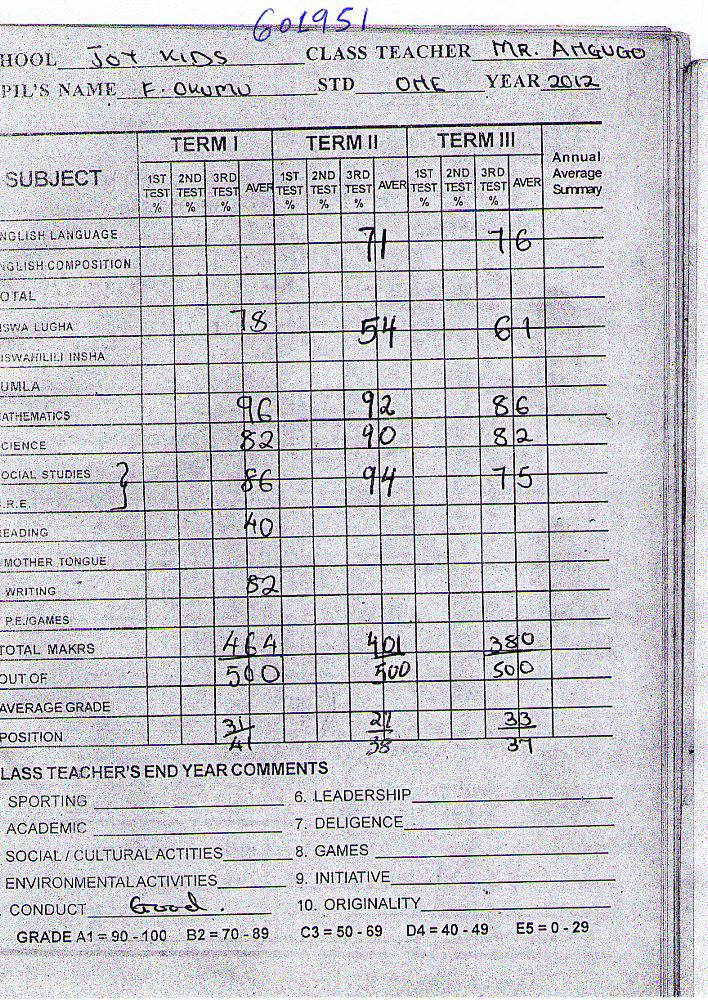 601951
HOOL JOY KIDS CLASS TEACHER MR. AMGUGO
PIL'S NAME F. OKUMU STD ONE YEAR 2012
SUBJECT TERM I TERM II TERM III Annual Average Summary
1ST TEST % 2ND TEST % 3RD TEST % AVER 1ST TEST % 2ND TEST % 3RD TEST % AVER 1ST TEST % 2ND TEST % 3RD TEST % AVER
NGLISH LANGUAGE 71 76
NGLISH COMPOSITION
OTAL
ISWA LUGHA 78 54 61
ISWAHILILI INSHA
UMLA
ATHEMATICS 96 92 86
CIENCE 82 90 82
OCIAL STUDIES 86 94 75
.R.E.
EADING 40
MOTHER TONGUE
WRITING 82
P.E./GAMES
TOTAL MAKRS 464 401 380
OUT OF 500 500 500
AVERAGE GRADE
POSITION 31/41 27/38 33/37
LASS TEACHER'S END YEAR COMMENTS
SPORTING 6. LEADERSHIP
ACADEMIC 7. DELIGENCE
SOCIAL / CULTURAL ACTITIES 8. GAMES
ENVIRONMENTAL ACTIVITIES 9. INITIATIVE
CONDUCT Good. 10. ORIGINALITY
GRADE A1 = 90 - 100 B2 = 70 - 89 C3 = 50 - 69 D4 = 40 - 49 E5 = 0 - 29